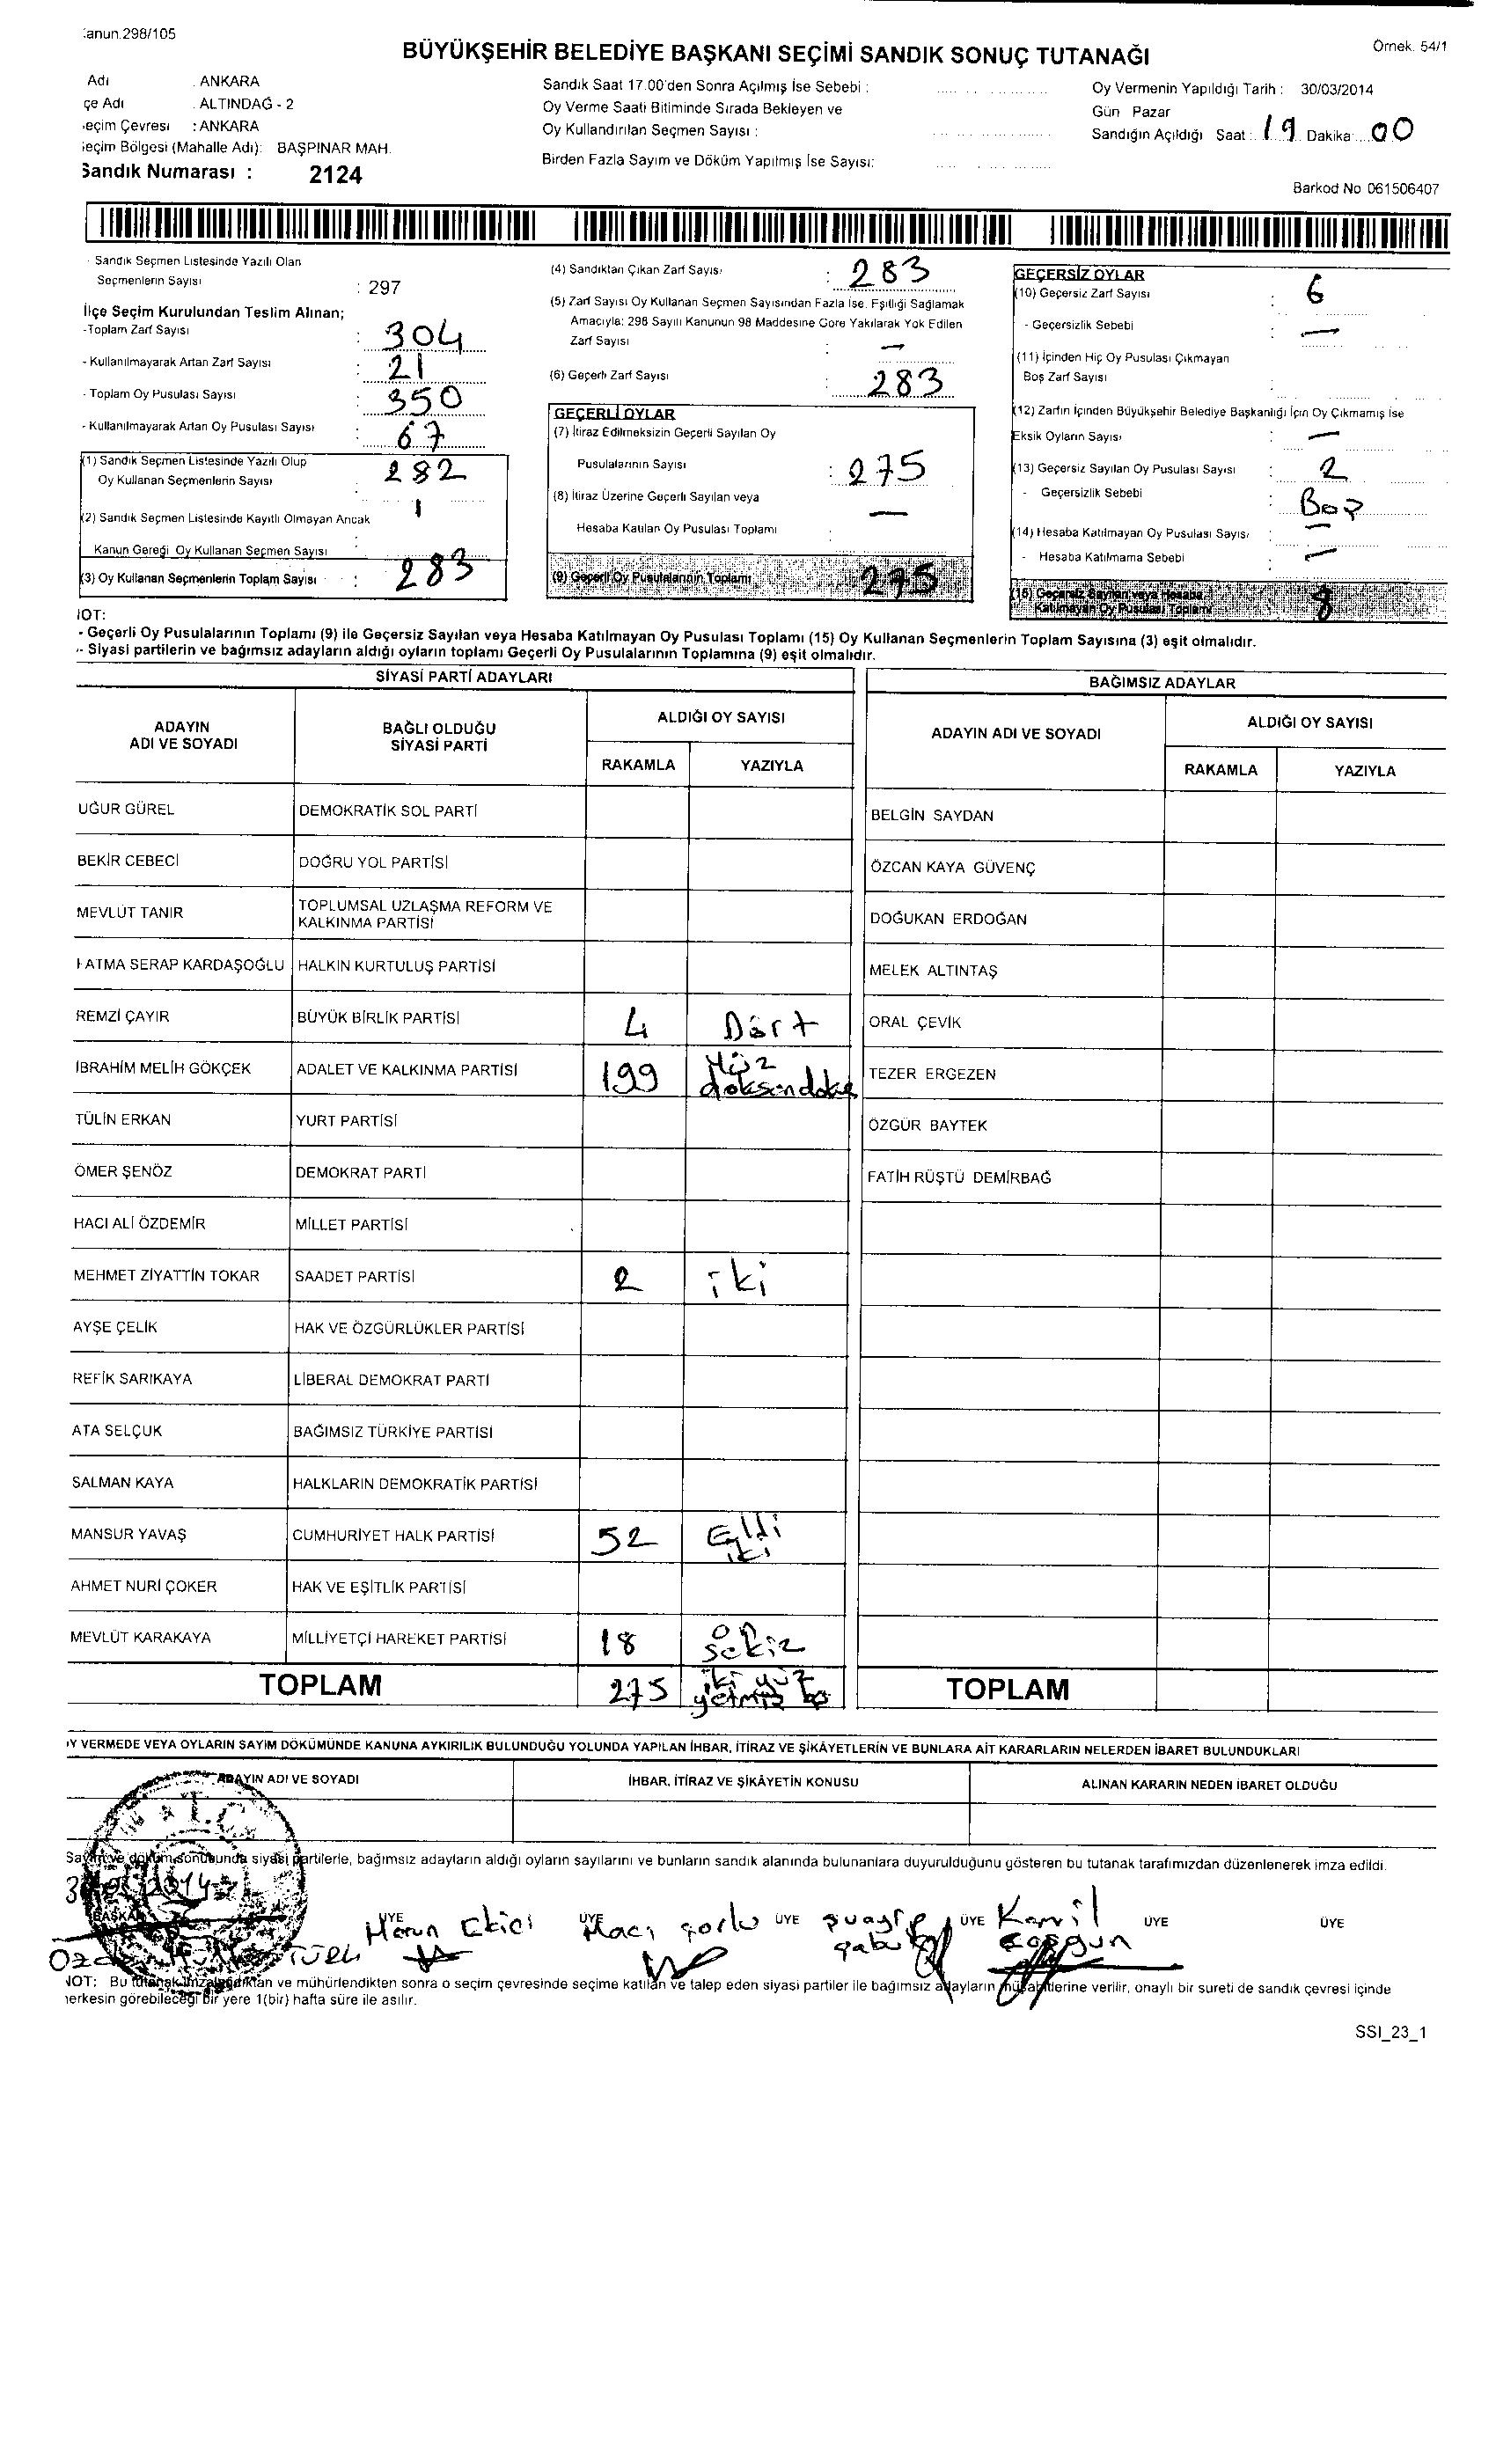 Kanun.298/105
Örnek. 54/1
BÜYÜKŞEHİR BELEDİYE BAŞKANI SEÇİMİ SANDIK SONUÇ TUTANAĞI
Adı : ANKARA
çe Adı : ALTINDAĞ - 2
eçim Çevresi : ANKARA
eçim Bölgesi (Mahalle Adı): BAŞPINAR MAH.
Sandık Numarası : 2124
Sandık Saat 17.00'den Sonra Açılmış İse Sebebi :
Oy Verme Saati Bitiminde Sırada Bekleyen ve
Oy Kullandırılan Seçmen Sayısı :
Birden Fazla Sayım ve Döküm Yapılmış İse Sayısı:
Oy Vermenin Yapıldığı Tarih : 30/03/2014
Gün Pazar
Sandığın Açıldığı Saat : 19 Dakika: 00
Barkod No 061506407
- Sandık Seçmen Listesinde Yazılı Olan
Seçmenlerin Sayısı : 297
İlçe Seçim Kurulundan Teslim Alınan;
-Toplam Zarf Sayısı : 304
- Kullanılmayarak Artan Zarf Sayısı : 21
- Toplam Oy Pusulası Sayısı : 350
- Kullanılmayarak Artan Oy Pusulası Sayısı : 67
(1) Sandık Seçmen Listesinde Yazılı Olup
Oy Kullanan Seçmenlerin Sayısı : 282
(2) Sandık Seçmen Listesinde Kayıtlı Olmayan Ancak
Kanun Gereği Oy Kullanan Seçmen Sayısı : 1
(3) Oy Kullanan Seçmenlerin Toplam Sayısı : 283
(4) Sandıktan Çıkan Zarf Sayısı : 283
(5) Zarf Sayısı Oy Kullanan Seçmen Sayısından Fazla İse, Eşitliği Sağlamak
Amacıyla; 298 Sayılı Kanunun 98 Maddesine Göre Yakılarak Yok Edilen
Zarf Sayısı : —
(6) Geçerli Zarf Sayısı : 283
GEÇERLİ OYLAR
(7) İtiraz Edilmeksizin Geçerli Sayılan Oy
Pusulalarının Sayısı : 275
(8) İtiraz Üzerine Geçerli Sayılan veya
Hesaba Katılan Oy Pusulası Toplamı : —
(9) Geçerli Oy Pusulalarının Toplamı : 275
GEÇERSİZ OYLAR
(10) Geçersiz Zarf Sayısı : 6
- Geçersizlik Sebebi : —
(11) İçinden Hiç Oy Pusulası Çıkmayan
Boş Zarf Sayısı :
(12) Zarfın İçinden Büyükşehir Belediye Başkanlığı İçin Oy Çıkmamış İse
Eksik Oyların Sayısı : —
(13) Geçersiz Sayılan Oy Pusulası Sayısı : 2
- Geçersizlik Sebebi : Boş
(14) Hesaba Katılmayan Oy Pusulası Sayısı : —
- Hesaba Katılmama Sebebi : —
(15) Geçersiz Sayılan veya Hesaba
Katılmayan Oy Pusulası Toplamı : 8
NOT:
- Geçerli Oy Pusulalarının Toplamı (9) ile Geçersiz Sayılan veya Hesaba Katılmayan Oy Pusulası Toplamı (15) Oy Kullanan Seçmenlerin Toplam Sayısına (3) eşit olmalıdır.
- Siyasi partilerin ve bağımsız adayların aldığı oyların toplamı Geçerli Oy Pusulalarının Toplamına (9) eşit olmalıdır.
SİYASİ PARTİ ADAYLARI
ADAYIN ADI VE SOYADI BAĞLI OLDUĞU SİYASİ PARTİ ALDIĞI OY SAYISI
RAKAMLA YAZIYLA
UĞUR GÜREL DEMOKRATİK SOL PARTİ
BEKİR CEBECİ DOĞRU YOL PARTİSİ
MEVLÜT TANIR TOPLUMSAL UZLAŞMA REFORM VE KALKINMA PARTİSİ
FATMA SERAP KARDAŞOĞLU HALKIN KURTULUŞ PARTİSİ
REMZİ ÇAYIR BÜYÜK BİRLİK PARTİSİ 4 Dört
İBRAHİM MELİH GÖKÇEK ADALET VE KALKINMA PARTİSİ 199 Yüz doksandokuz
TÜLİN ERKAN YURT PARTİSİ
ÖMER ŞENÖZ DEMOKRAT PARTİ
HACI ALİ ÖZDEMİR MİLLET PARTİSİ
MEHMET ZİYATTİN TOKAR SAADET PARTİSİ 2 iki
AYŞE ÇELİK HAK VE ÖZGÜRLÜKLER PARTİSİ
REFİK SARIKAYA LİBERAL DEMOKRAT PARTİ
ATA SELÇUK BAĞIMSIZ TÜRKİYE PARTİSİ
SALMAN KAYA HALKLARIN DEMOKRATİK PARTİSİ
MANSUR YAVAŞ CUMHURİYET HALK PARTİSİ 52 Elli iki
AHMET NURİ ÇOKER HAK VE EŞİTLİK PARTİSİ
MEVLÜT KARAKAYA MİLLİYETÇİ HAREKET PARTİSİ 18 on sekiz
TOPLAM 275 iki yüz yetmiş beş
BAĞIMSIZ ADAYLAR
ADAYIN ADI VE SOYADI ALDIĞI OY SAYISI
RAKAMLA YAZIYLA
BELGİN SAYDAN
ÖZCAN KAYA GÜVENÇ
DOĞUKAN ERDOĞAN
MELEK ALTINTAŞ
ORAL ÇEVİK
TEZER ERGEZEN
ÖZGÜR BAYTEK
FATİH RÜŞTÜ DEMİRBAĞ
TOPLAM
OY VERMEDE VEYA OYLARIN SAYIM DÖKÜMÜNDE KANUNA AYKIRILIK BULUNDUĞU YOLUNDA YAPILAN İHBAR, İTİRAZ VE ŞİKÂYETLERİN VE BUNLARA AİT KARARLARIN NELERDEN İBARET BULUNDUKLARI
ADAYIN ADI VE SOYADI İHBAR, İTİRAZ VE ŞİKÂYETİN KONUSU ALINAN KARARIN NEDEN İBARET OLDUĞU
Sayım ve döküm sonucunda siyasi partilerle, bağımsız adayların aldığı oyların sayılarını ve bunların sandık alanında bulunanlara duyurulduğunu gösteren bu tutanak tarafımızdan düzenlenerek imza edildi.
BAŞKAN ÜYE ÜYE ÜYE ÜYE ÜYE ÜYE
Harun Ekici Hacı Kamil
NOT: Bu tutanak imzalandıktan ve mühürlendikten sonra o seçim çevresinde seçime katılan ve talep eden siyasi partiler ile bağımsız adayların müşahitlerine verilir, onaylı bir sureti de sandık çevresi içinde
herkesin görebileceği bir yere 1(bir) hafta süre ile asılır.
SSI_23_1